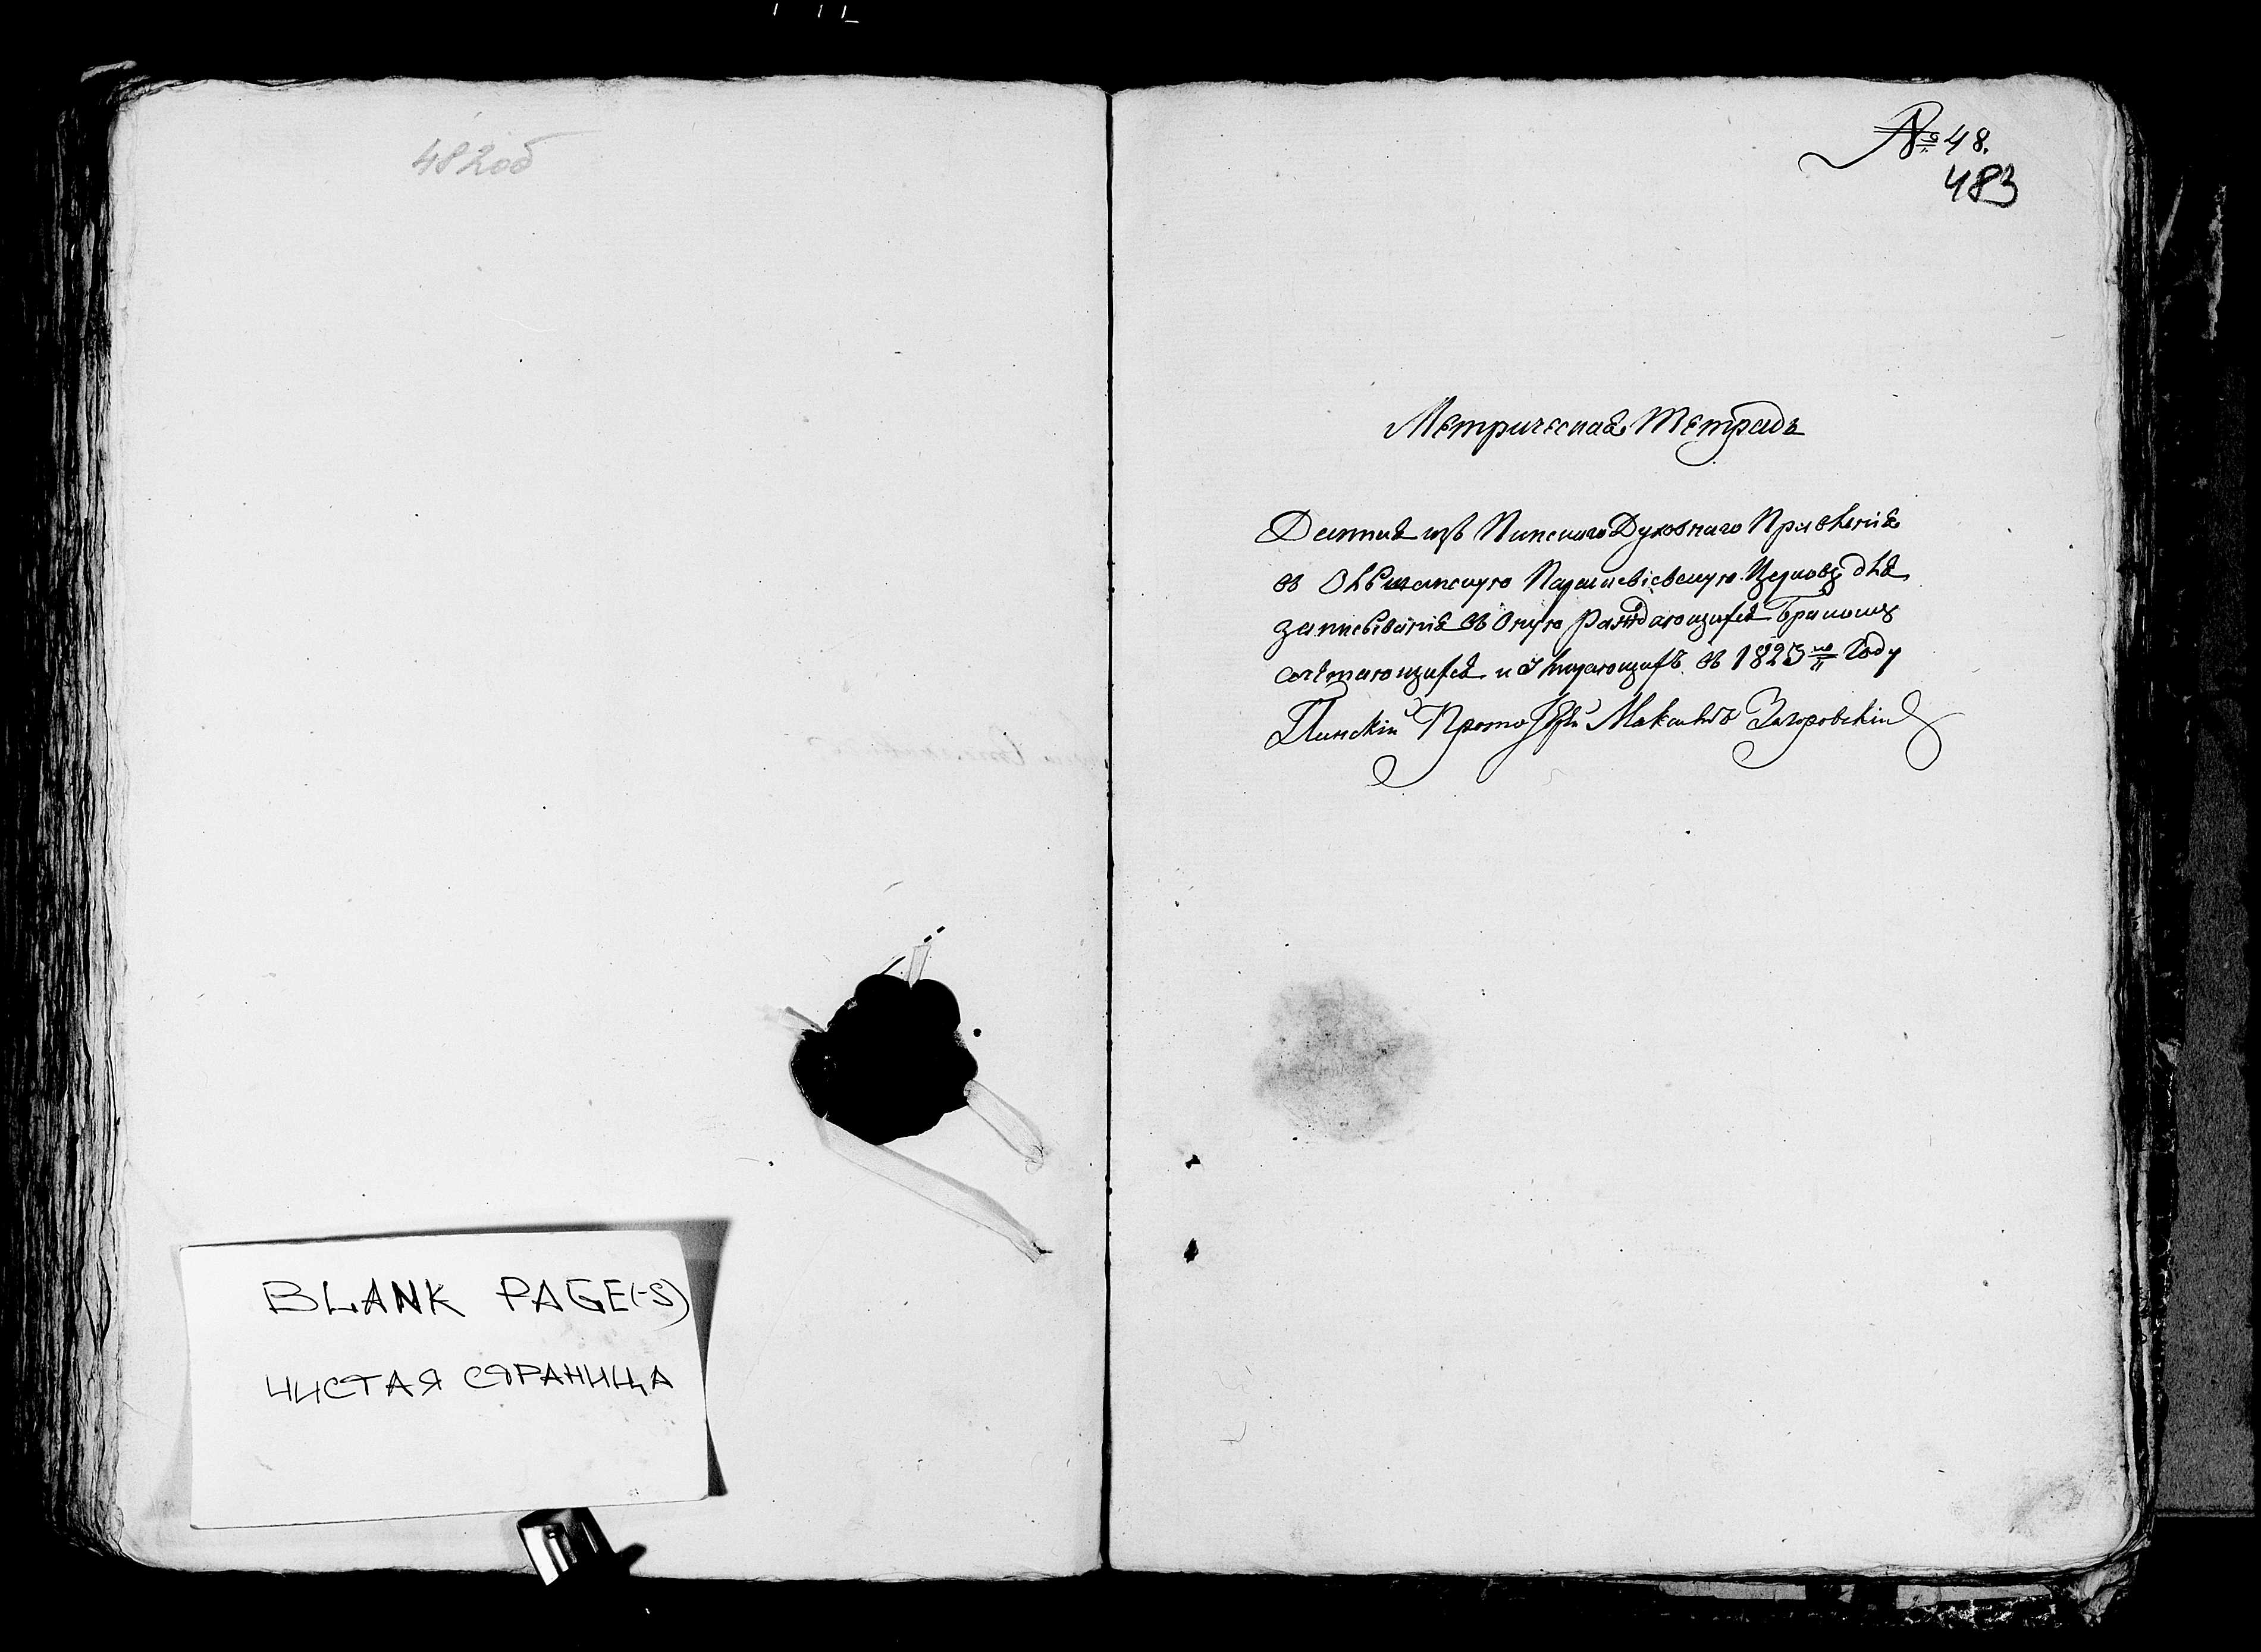 482об
BLANK PAGE(-S)
ЧИСТАЯ СТРАНИЦА
№ 48.
483
Метрическая Тетрадь
Данная изъ Пинскаго Духовнаго Правленія
въ Параскевіевскую Церковь для
записыванія въ оную Раждающихся Бракомъ
сочетающихся и Умирающихъ въ 1825 Году
Пинскій Прото Загоровскій